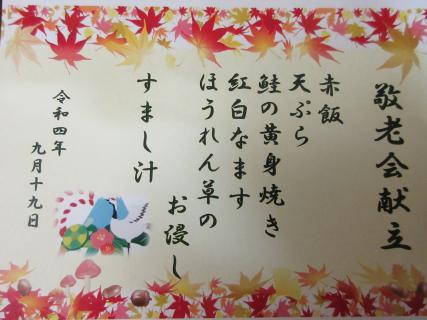 敬老会献立
赤飯
天ぷら
鮭の黄身焼き
紅白なます
ほうれん草の
お浸し
すまし汁
令和四年
九月十九日